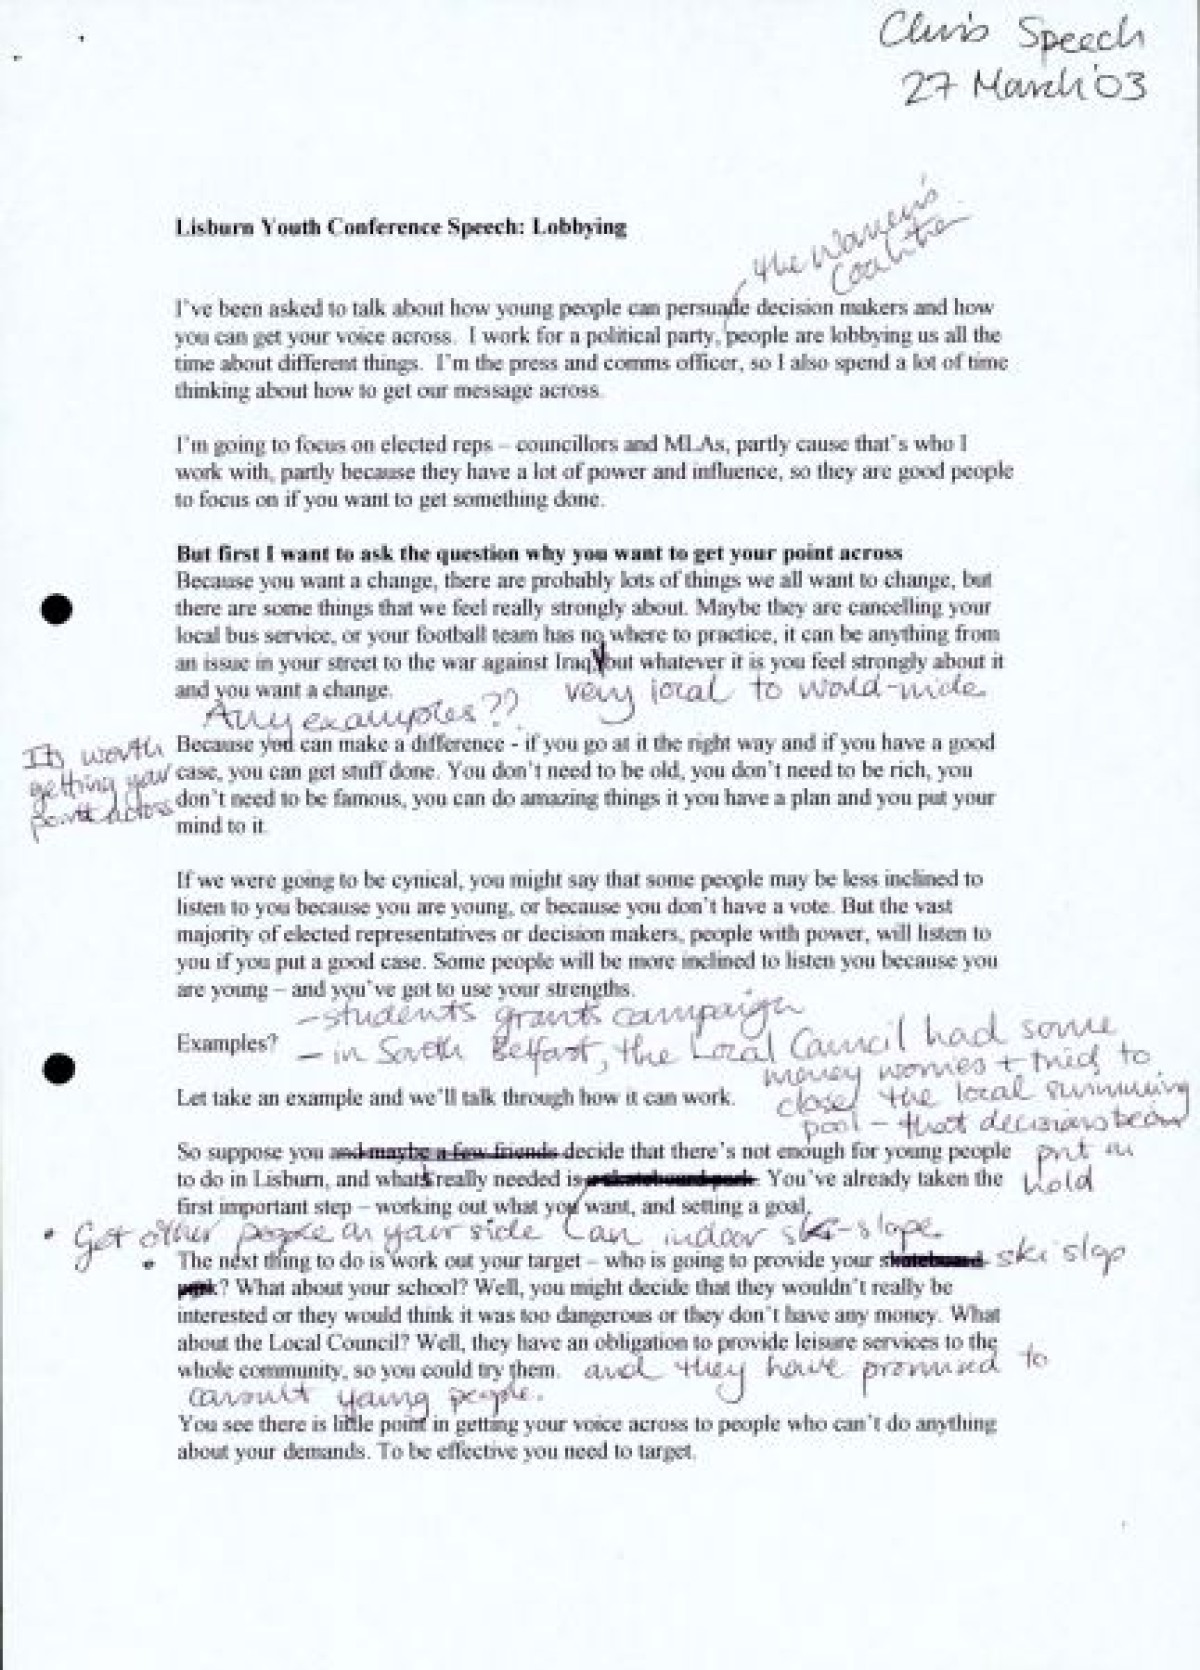 Chris Speech
27 March '03
Lisburn Youth Conference Speech: Lobbying
the Women's
Coalition
I've been asked to talk about how young people can persuade decision makers and how
you can get your voice across. I work for a political party, people are lobbying us all the
time about different things. I'm the press and comms officer, so I also spend a lot of time
thinking about how to get our message across.
I'm going to focus on elected reps – councillors and MLAs, partly cause that's who I
work with, partly because they have a lot of power and influence, so they are good people
to focus on if you want to get something done.
But first I want to ask the question why you want to get your point across
Because you want a change, there are probably lots of things we all want to change, but
there are some things that we feel really strongly about. Maybe they are cancelling your
local bus service, or your football team has no where to practice, it can be anything from
an issue in your street to the war against Iraq, but whatever it is you feel strongly about it
and you want a change.
very local to world-wide
Any examples??
Its worth
getting your
point across
Because you can make a difference - if you go at it the right way and if you have a good
case, you can get stuff done. You don't need to be old, you don't need to be rich, you
don't need to be famous, you can do amazing things it you have a plan and you put your
mind to it.
If we were going to be cynical, you might say that some people may be less inclined to
listen to you because you are young, or because you don't have a vote. But the vast
majority of elected representatives or decision makers, people with power, will listen to
you if you put a good case. Some people will be more inclined to listen you because you
are young – and you've got to use your strengths.
- students grants campaign
Examples?
- in South Belfast, the Local Council had some
money worries + tried to
close the local swimming
pool - that decisions been
put on
hold
Let take an example and we'll talk through how it can work.
So suppose you and maybe a few friends decide that there's not enough for young people
to do in Lisburn, and what's really needed is a skateboard park. You've already taken the
first important step – working out what you want, and setting a goal.
• Get other people on your side
an indoor ski-slope.
• The next thing to do is work out your target – who is going to provide your skateboard ski slop
park? What about your school? Well, you might decide that they wouldn't really be
interested or they would think it was too dangerous or they don't have any money. What
about the Local Council? Well, they have an obligation to provide leisure services to the
whole community, so you could try them. and they have promised to
consult young people.
You see there is little point in getting your voice across to people who can't do anything
about your demands. To be effective you need to target.